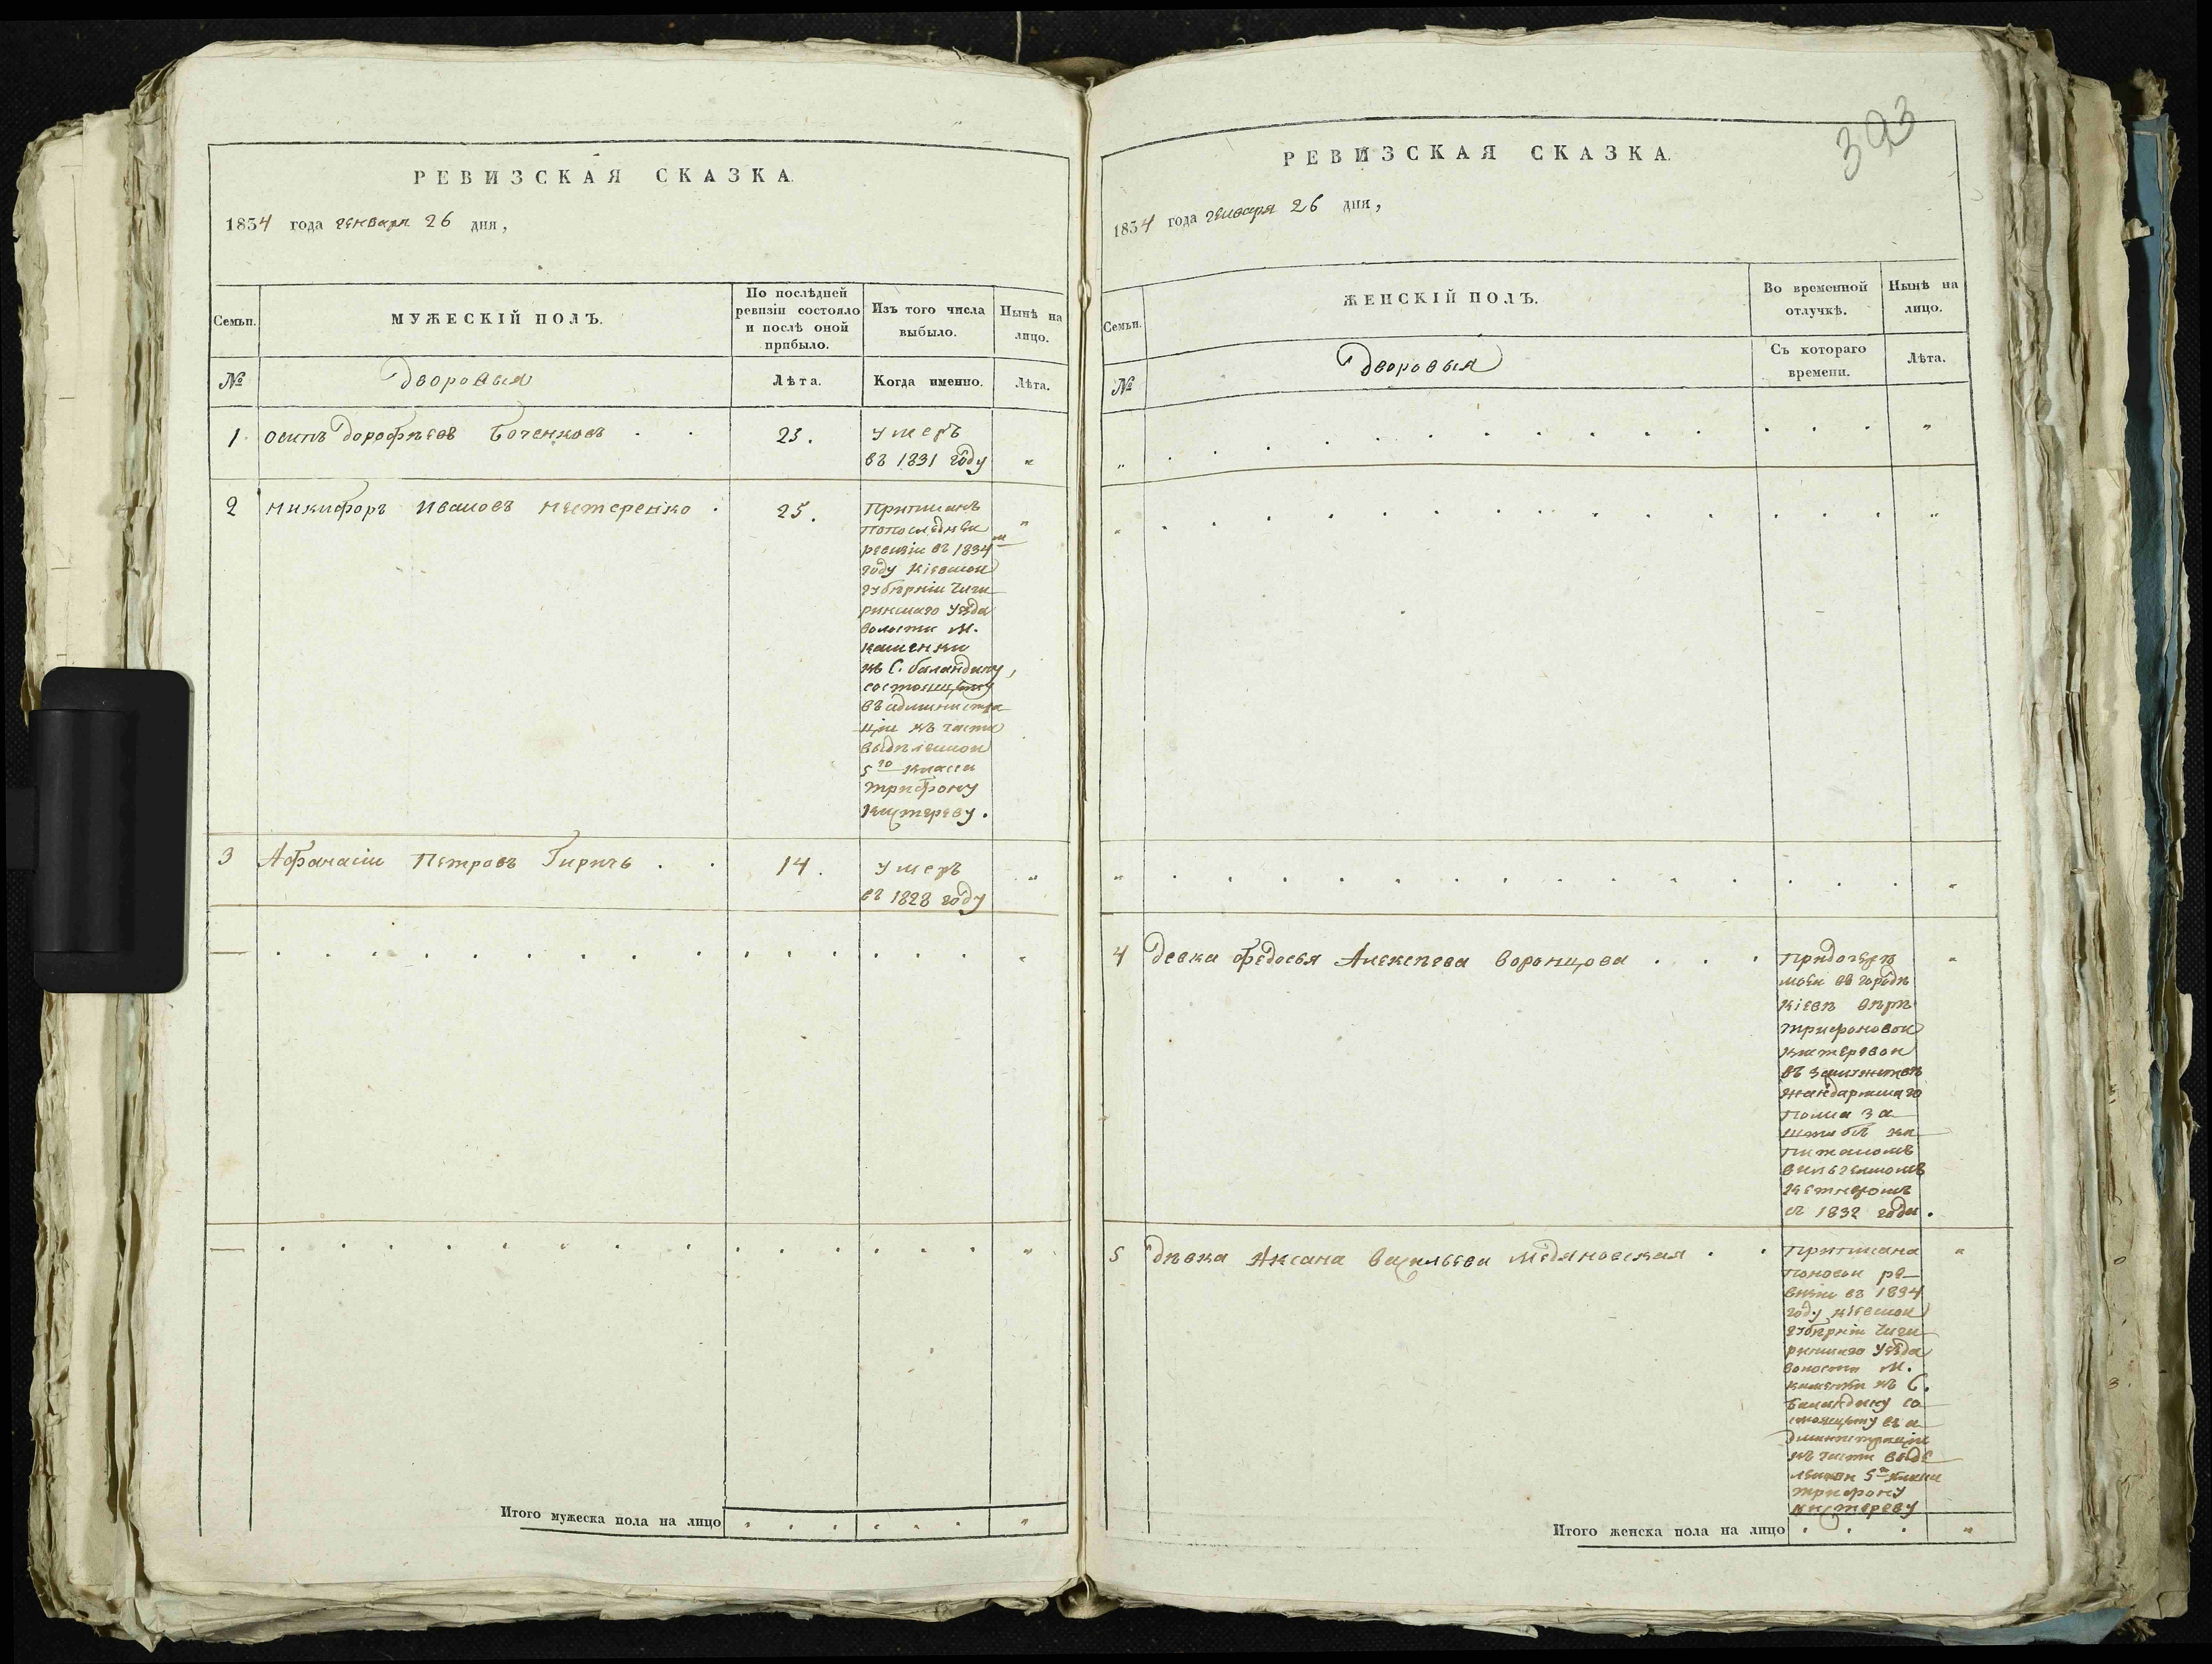 РЕВИЗСКАЯ СКАЗКА.
1834 года генваря 26 дня,
Семьи.
МУЖЕСКІЙ ПОЛЪ.
По послѣдней
ревизіи состояло
и послѣ оной
прибыло.
Изъ того числа
выбыло.
Нынѣ на
лицо.
№
Дворовыя
Лѣта.
Когда именно.
Лѣта.
1 Осипъ Дорофѣевъ Боченковъ . . 23.
умеръ
въ 1831 году "
2 Никифоръ Ивановъ Нестеренко . 25.
Приписанъ
попослѣдней "
ревизіи въ 1834 м
году Кіевской
губерніи Чиги
ринскаго уѣзда
волости М.
Каменки
къ С. Баландину,
состоящему
въ администра
ціи къ части
выдѣленной
5го класса
Трифону
3 Афанасіи Петровъ Гиричь . . 14.
умеръ
въ 1828 году "
Итого мужеска пола на лицо
393
РЕВИЗСКАЯ СКАЗКА.
1834 года генваря 26 дня,
Семьи.
ЖЕНСКІЙ ПОЛЪ.
Во временной
отлучкѣ.
Нынѣ на
лицо.
№
Дворовыя
Съ котораго
времени.
Лѣта.
4 Девка Федосья Алексѣева Воронцова . . .
Придочерѣ "
моей въ городѣ
Кіевѣ Вѣрѣ
Трифоновой
въ замужествѣ
жандармскаго
полка за
штабсъ ка
питаномъ
съ 1832 года.
5 Дѣвка Аксана Васильева Медяновская . .
Приписана "
поновой ре
визіи въ 1834
году Кіевской
губерніи Чиги
ринскаго уѣзда
волости М.
Каменки къ С.
Баландину со
стоящему въ а
дминистраціи
къ части выдѣ
ленной 5го класса
Трифону
Итого женска пола на лицо